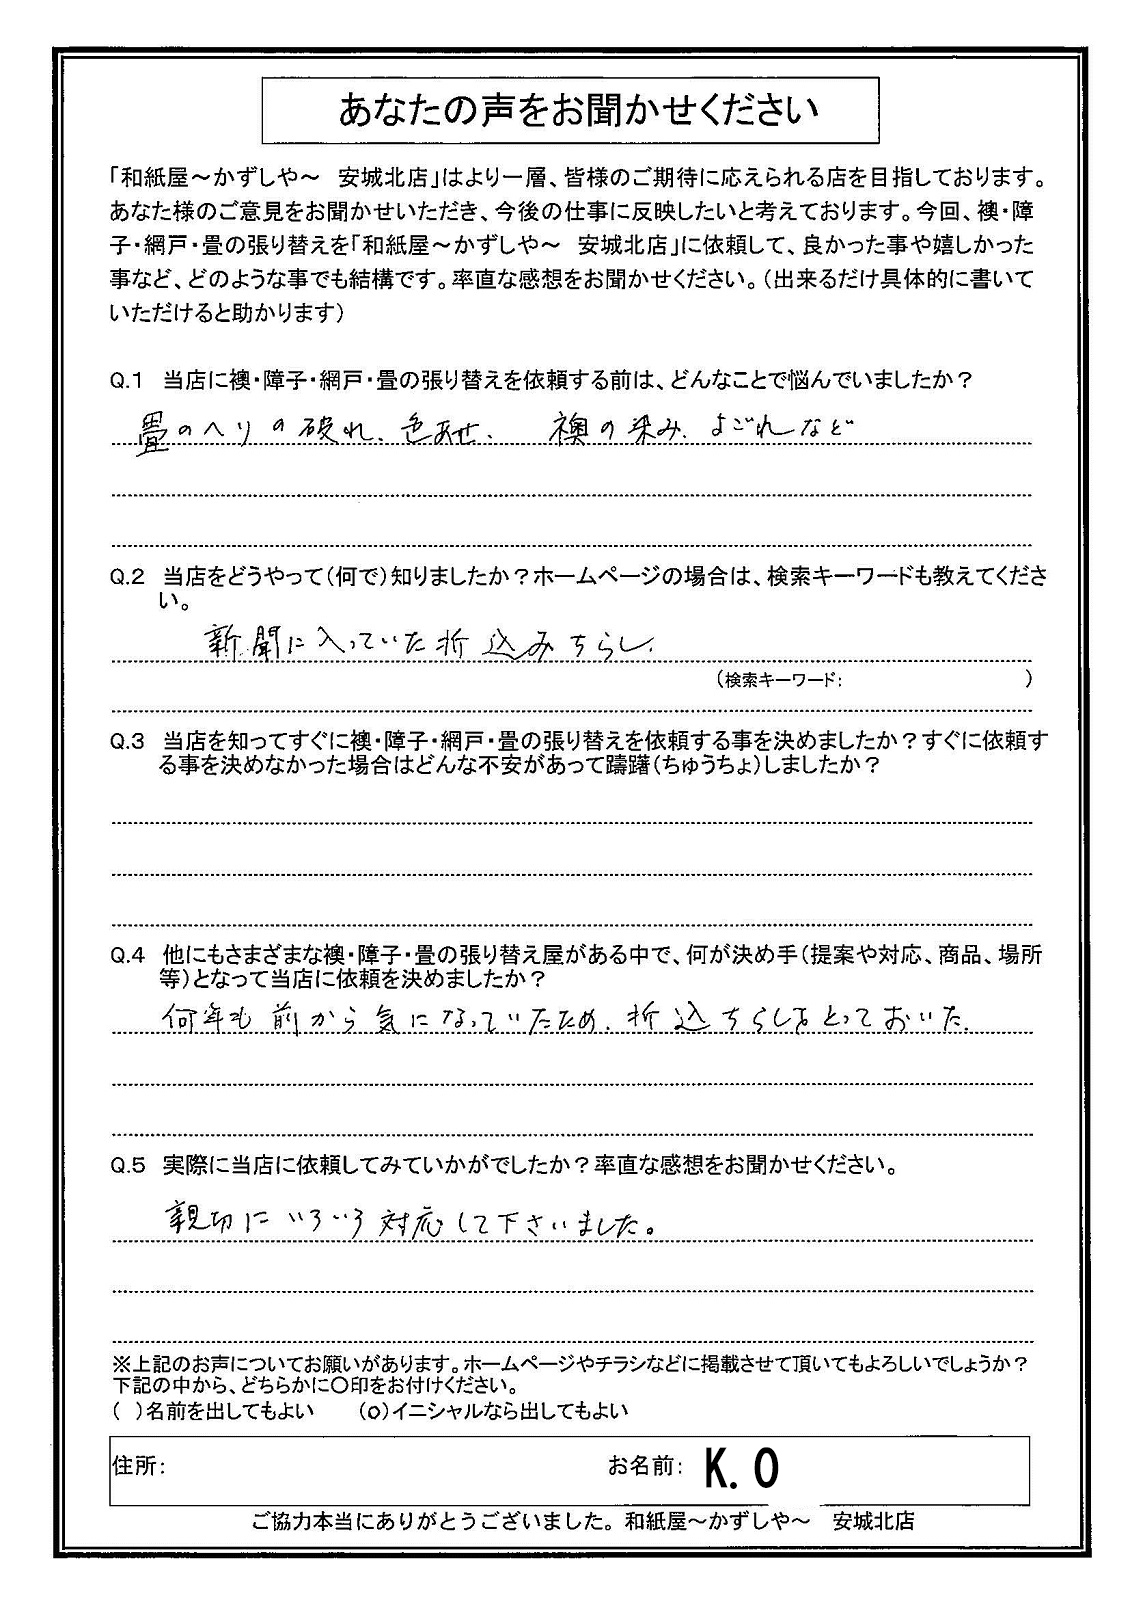 あなたの声をお聞かせください
「和紙屋～かずしや～　安城北店」はより一層、皆様のご期待に応えられる店を目指しております。
あなた様のご意見をお聞かせいただき、今後の仕事に反映したいと考えております。今回、襖・障
子・網戸・畳の張り替えを「和紙屋～かずしや～　安城北店」に依頼して、良かった事や嬉しかった
事など、どのような事でも結構です。率直な感想をお聞かせください。（出来るだけ具体的に書いて
いただけると助かります）
Q.1　当店に襖・障子・網戸・畳の張り替えを依頼する前は、どんなことで悩んでいましたか？
畳のヘリの破れ、色あせ、　襖の染み、よごれなど
Q.2　当店をどうやって（何で）知りましたか？ホームページの場合は、検索キーワードも教えてくださ
い。
新聞に入っていた折込みちらし、
（検索キーワード:　　　　　　　　　）
Q.3　当店を知ってすぐに襖・障子・網戸・畳の張り替えを依頼する事を決めましたか？すぐに依頼す
る事を決めなかった場合はどんな不安があって躊躇（ちゅうちょ）しましたか？
Q.4　他にもさまざまな襖・障子・畳の張り替え屋がある中で、何が決め手（提案や対応、商品、場所
等）となって当店に依頼を決めましたか？
何年も前から気になっていたため、折込ちらしをとっておいた。
Q.5　実際に当店に依頼してみていかがでしたか？率直な感想をお聞かせください。
親切にいろいろ対応して下さいました。
※上記のお声についてお願いがあります。ホームページやチラシなどに掲載させて頂いてもよろしいでしょうか？
下記の中から、どちらかに〇印をお付けください。
（　）名前を出してもよい　　（o）イニシャルなら出してもよい
住所:　　お名前: K.O
ご協力本当にありがとうございました。和紙屋～かずしや～　安城北店